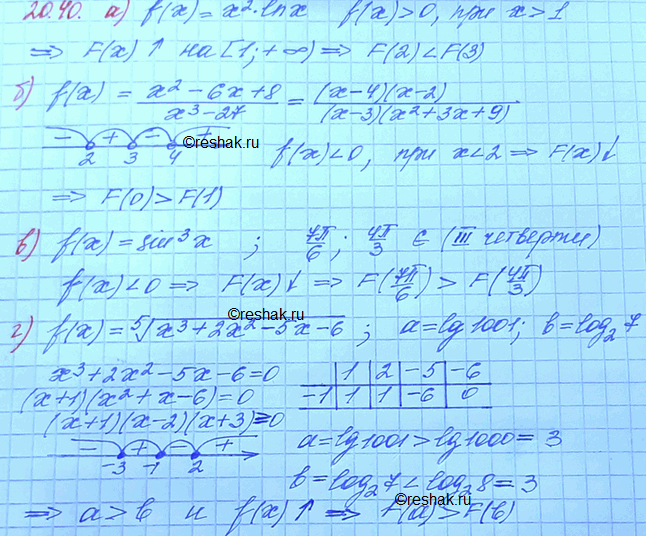 20.40. а) f(x) = x² · ln x   f(x) > 0, при x > 1
⇒ F(x) ↑ на [1; +∞) ⇒ F(2) < F(3)
б) f(x) = (x² − 6x + 8)/(x³ − 27) = ((x−4)(x−2))/((x−3)(x²+3x+9))
©reshak.ru
− + − +
2 3 4
f(x) < 0, при x < 2 ⇒ F(x) ↓
⇒ F(0) > F(1)
в) f(x) = sin³x ; 7π/6 ; 4π/3 ∈ (III четверти)
f(x) < 0 ⇒ F(x) ↓ ⇒ F(7π/6) > F(4π/3)
©reshak.ru
г) f(x) = ⁵√(x³ + 2x² − 5x − 6) ; a = lg 1001; b = log₂ 7
x³ + 2x² − 5x − 6 = 0
1 2 −5 −6
(x+1)(x² + x − 6) = 0
−1 1 1 −6 0
(x+1)(x−2)(x+3) = 0
− + − +
−3 −1 2
a = lg 1001 > lg 1000 = 3
b = log₂ 7 < log₂ 8 = 3
©reshak.ru
⇒ a > b и f(x) ↑ ⇒ F(a) > F(b)